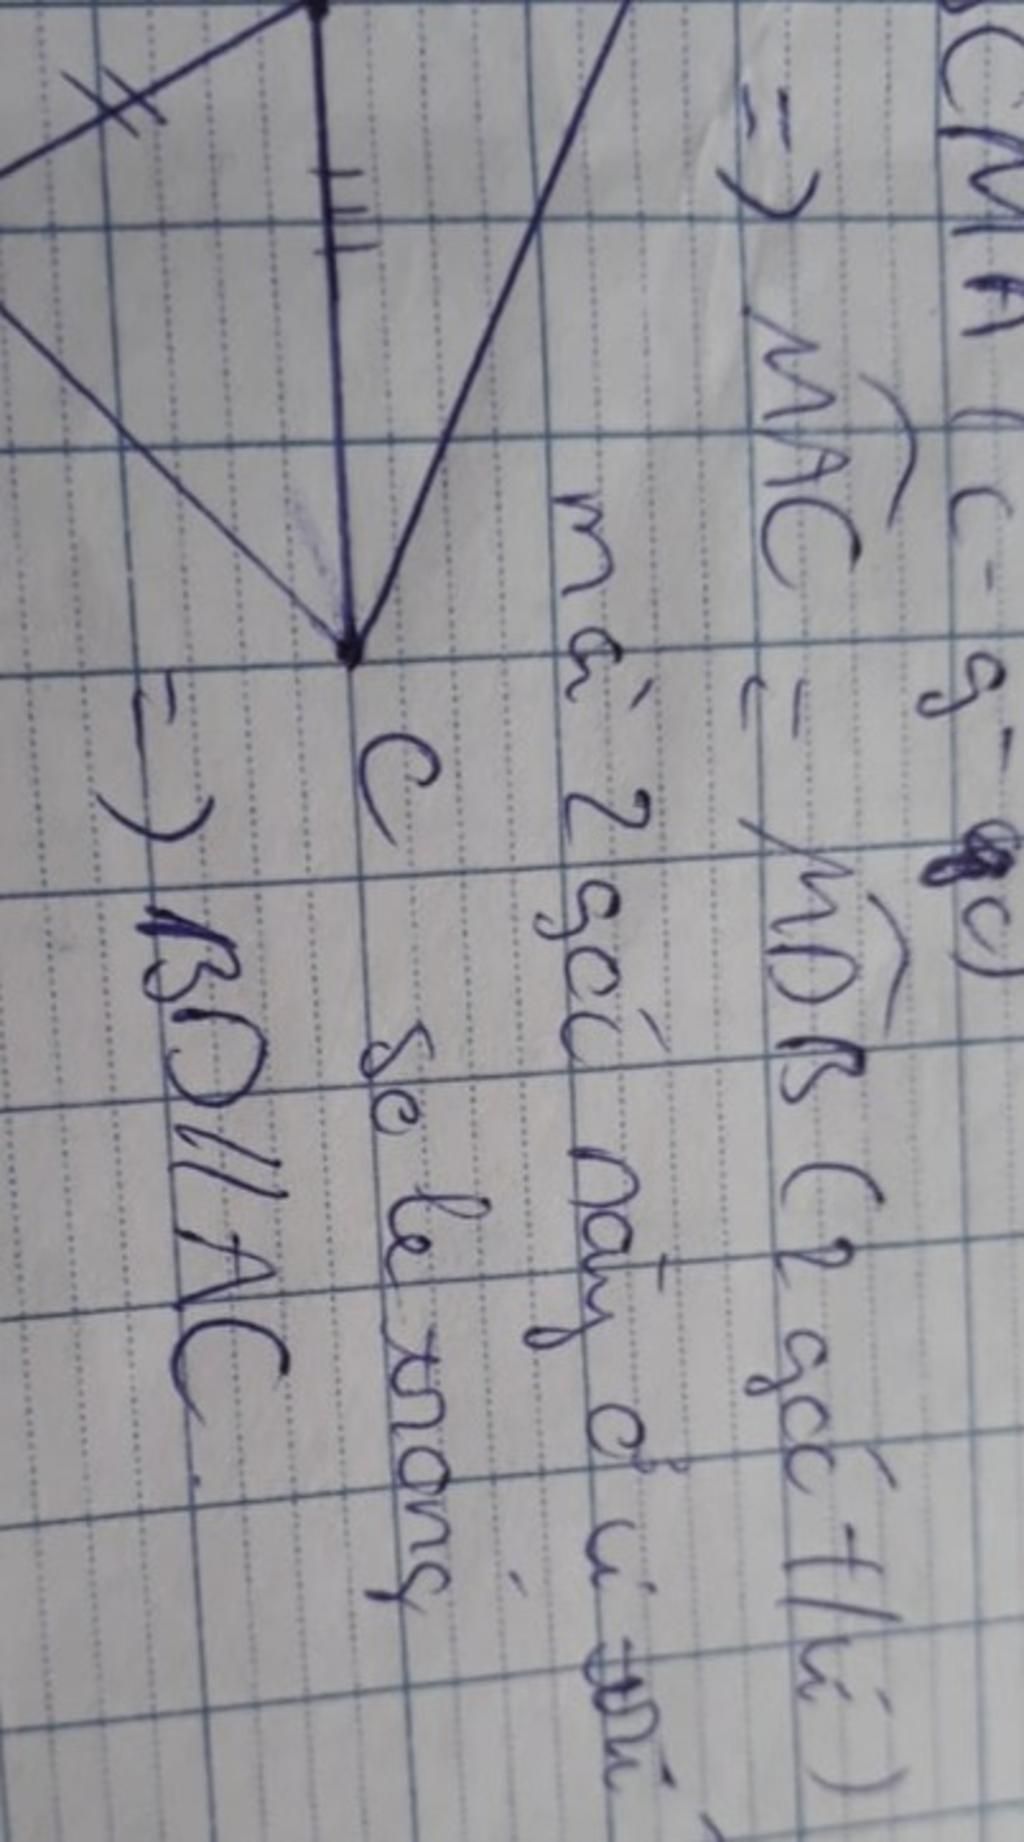 CMA (c-g-c)
=) MAC = MDB (2 góc t/ứ)
mà 2 góc này ở vị trí
C so le trong
=) BD // AC.